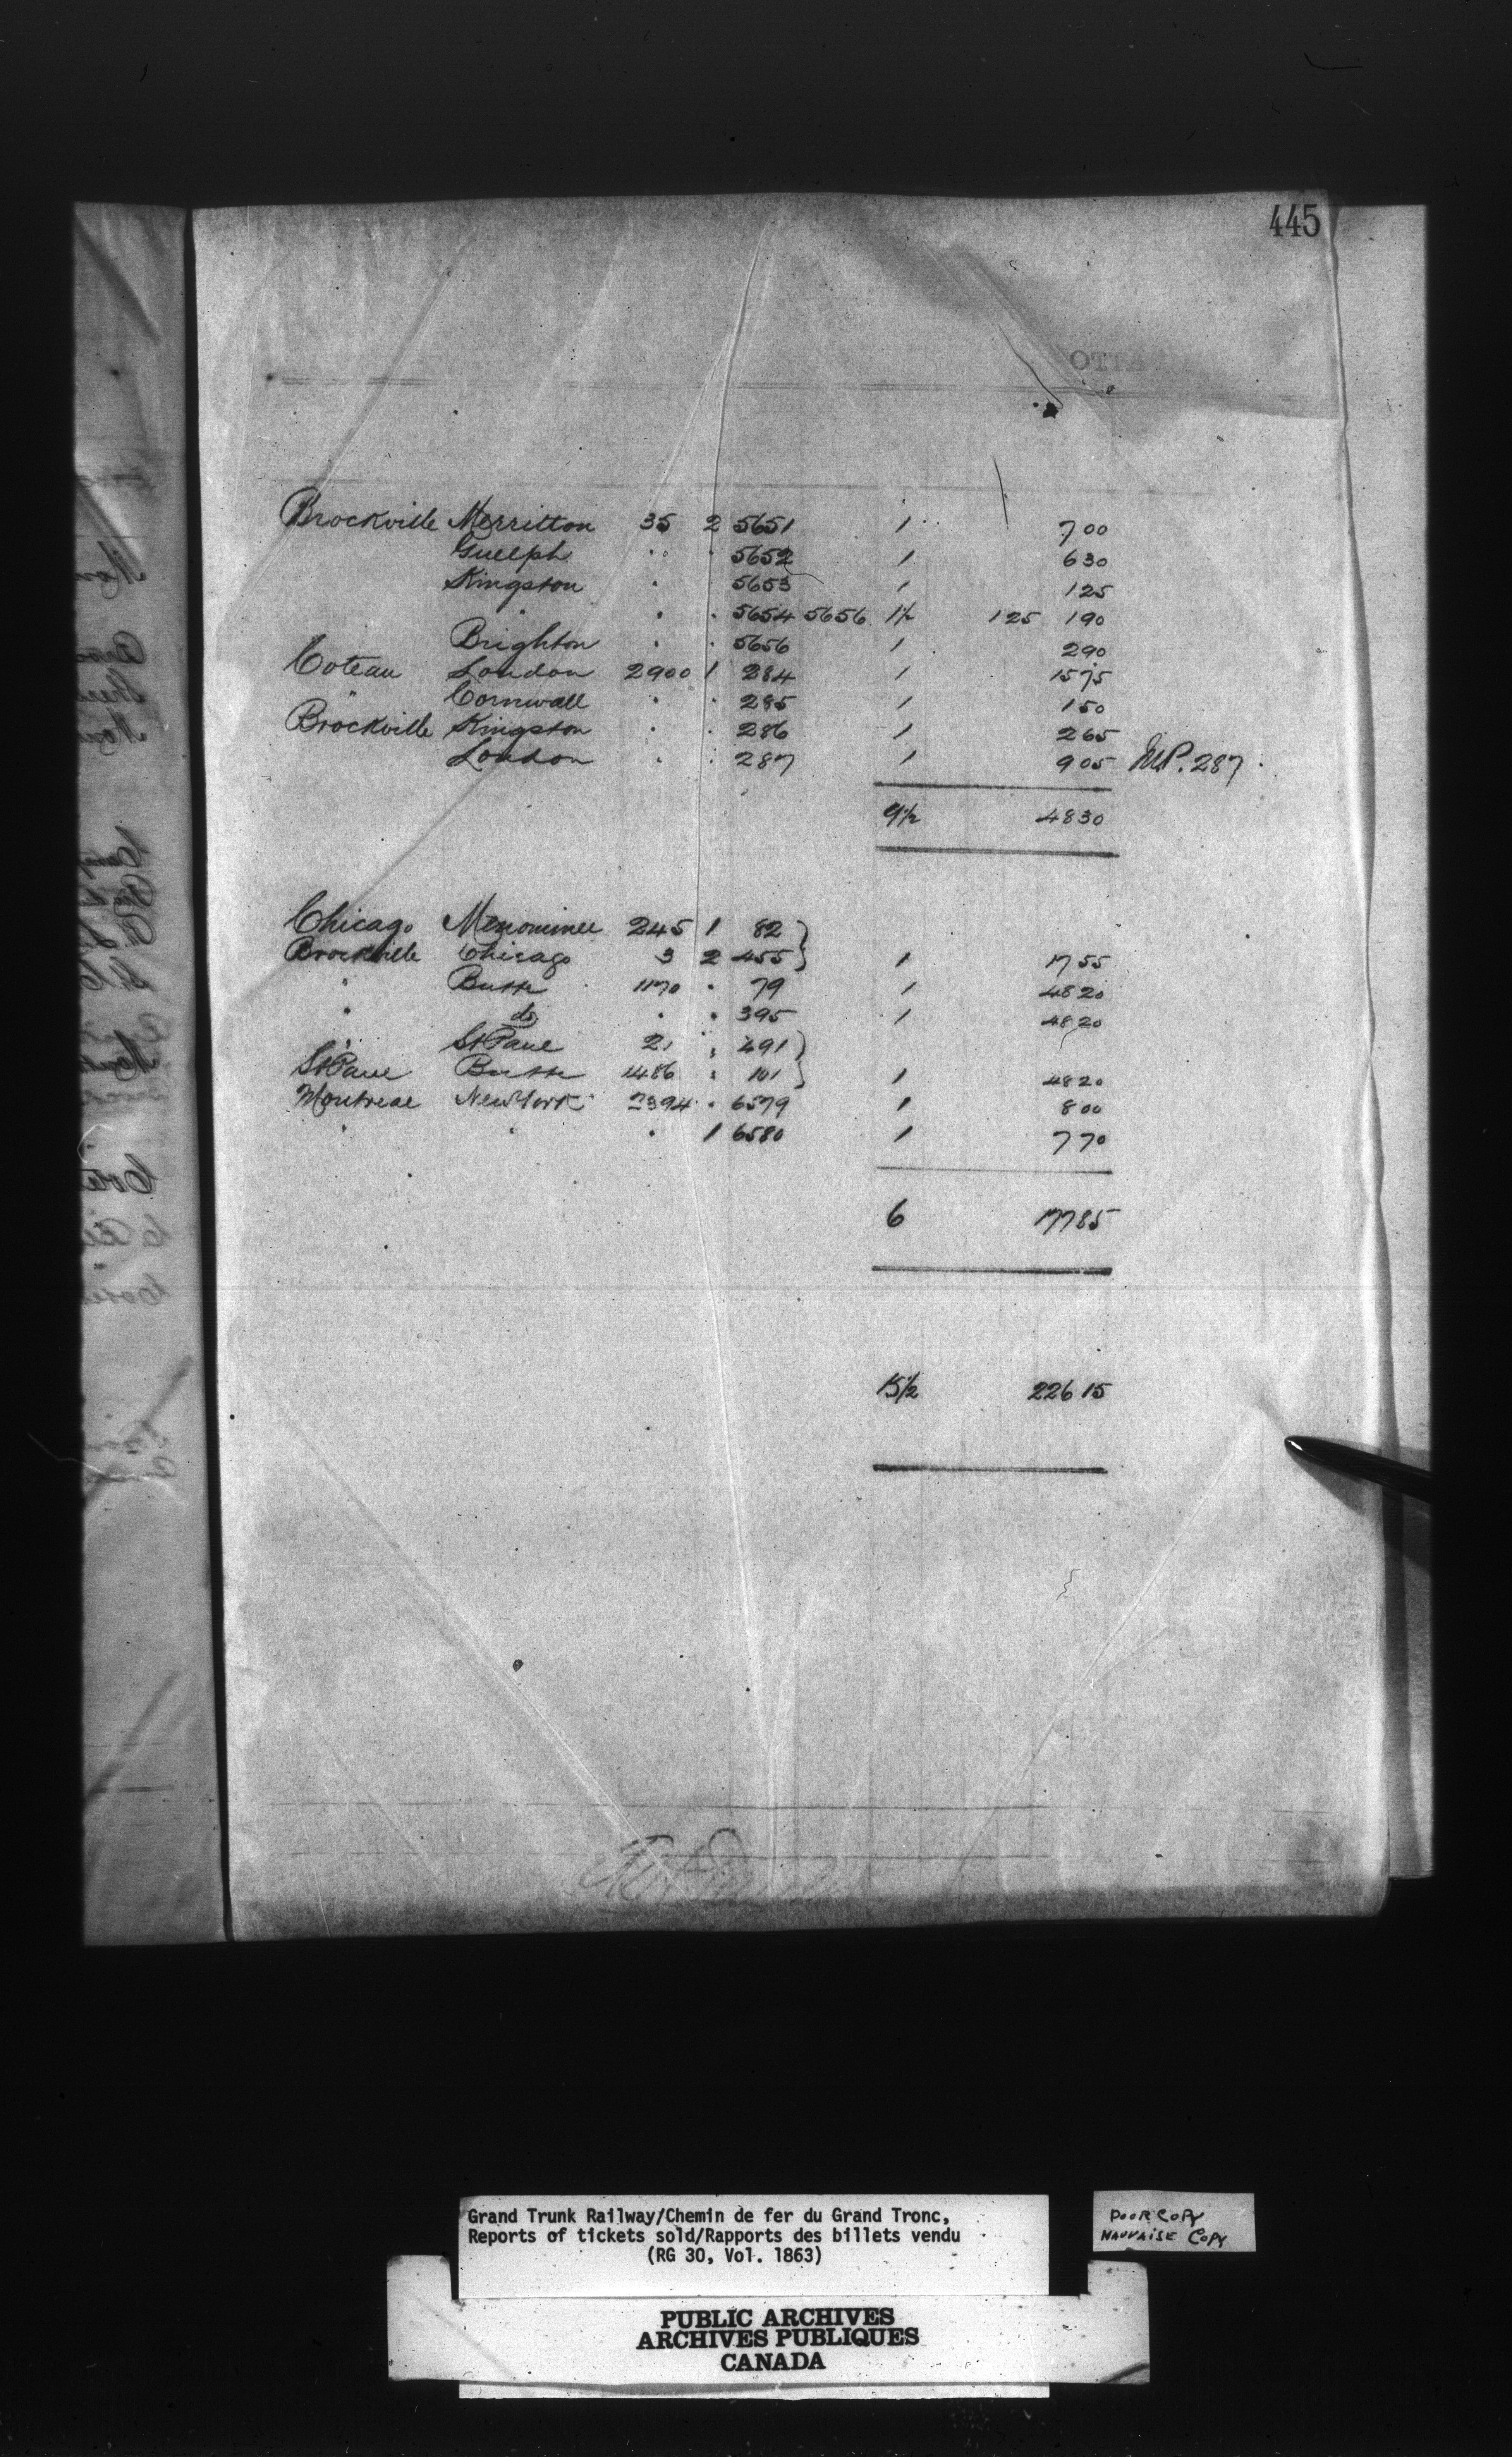 445
Brockville Merritton 35 2 5651 1 7 00
Guelph " " 5652 1 6 30
Kingston " " 5653 1 1 25
" " " 5654 5656 1½ 1 25 1 90
Brighton " " 5656 1 2 90
Coteau London 2900 1 284 1 15 75
" Cornwall " " 285 1 1 50
Brockville Kingston " " 286 1 2 65
London " " 287 1 9 05 MP. 287
9½ 48 30
Chicago Menominee 245 1 82 }
Brockville Chicago 3 2 455 } 1 17 55
" Butte 1170 " 79 1 48 20
" do " " 395 1 48 20
" St Paul 21 " 491 }
St Paul Butte 1486 " 101 } 1 48 20
Montreal New York 2394 " 6579 1 8 00
" " " 1 6580 1 7 70
6 177 85
15½ 226 15
Grand Trunk Railway/Chemin de fer du Grand Tronc,
Reports of tickets sold/Rapports des billets vendu
(RG 30, Vol. 1863)
POOR COPY
MAUVAISE COPY
PUBLIC ARCHIVES
ARCHIVES PUBLIQUES
CANADA